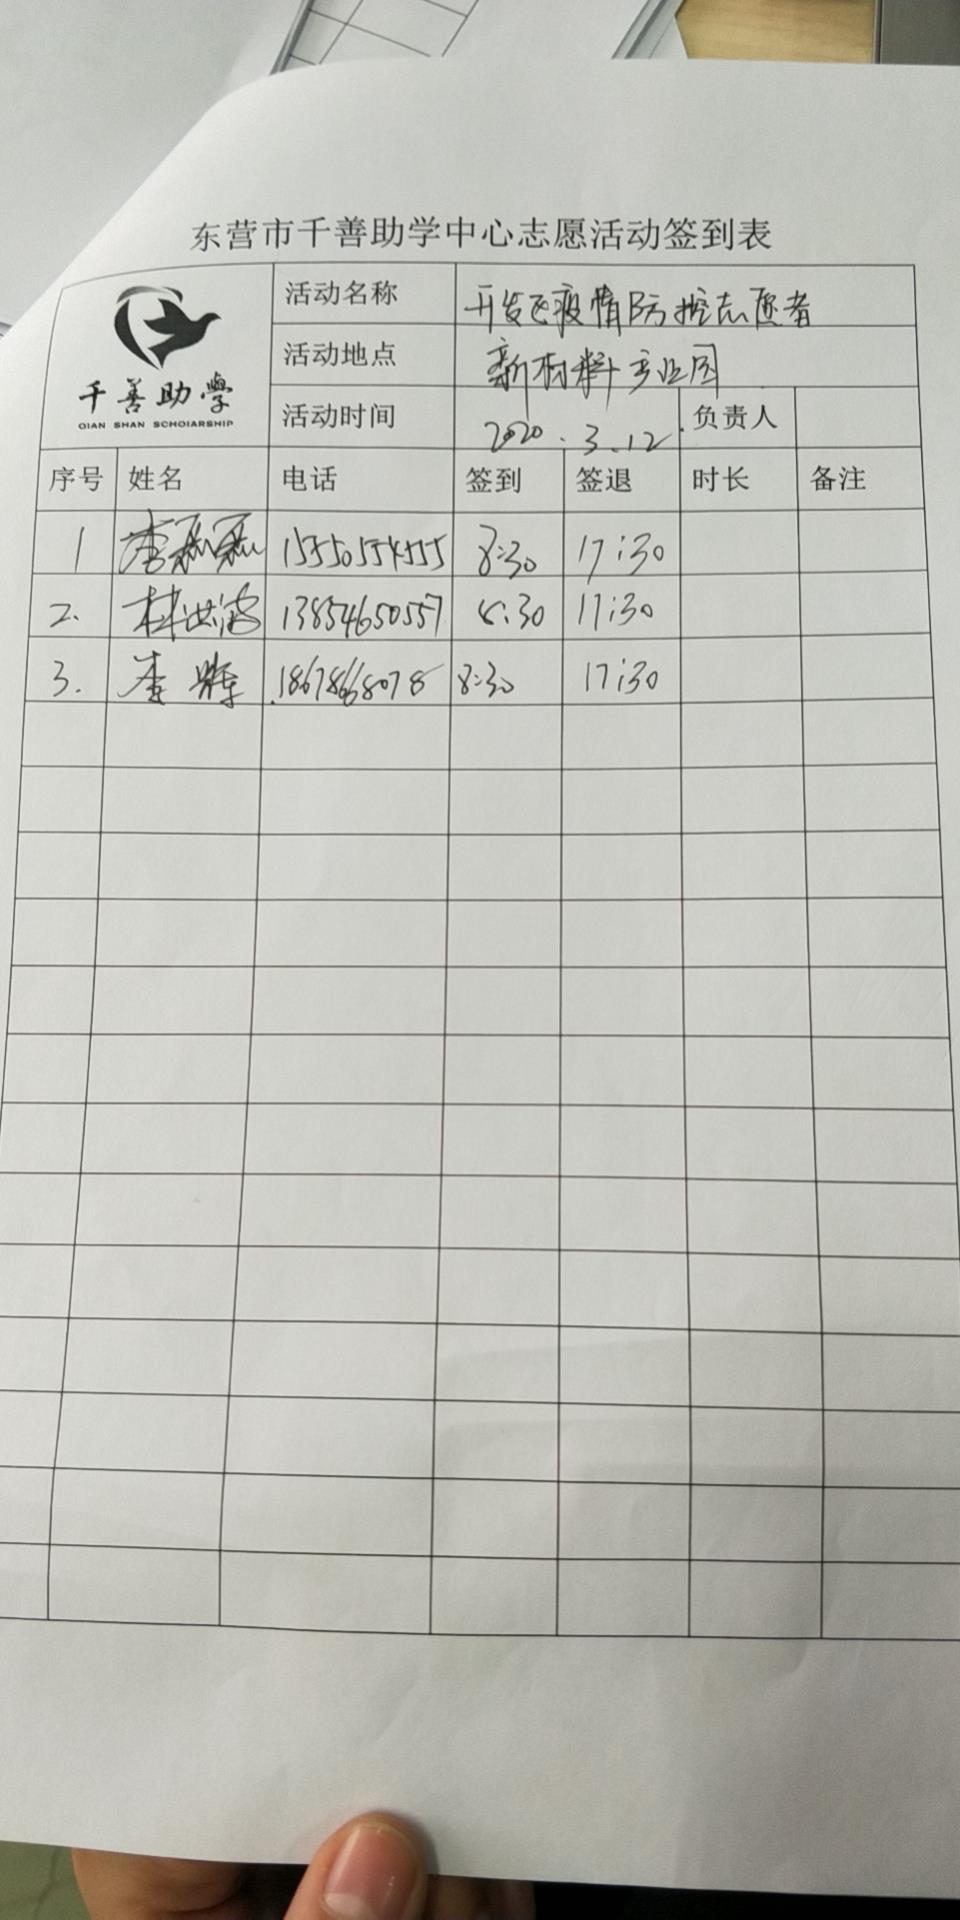 东营市千善助学中心志愿活动签到表
千善助學
QIAN SHAN SCHOIARSHIP
活动名称 开发区疫情防控志愿者
活动地点 新材料产业园
活动时间 2020.3.12 负责人
序号 姓名 电话 签到 签退 时长 备注
1 李磊磊 15550554555 8:30 17:30
2. 林洪波 13854650557 8:30 17:30
3. 李辉 18678668078 8:30 17:30